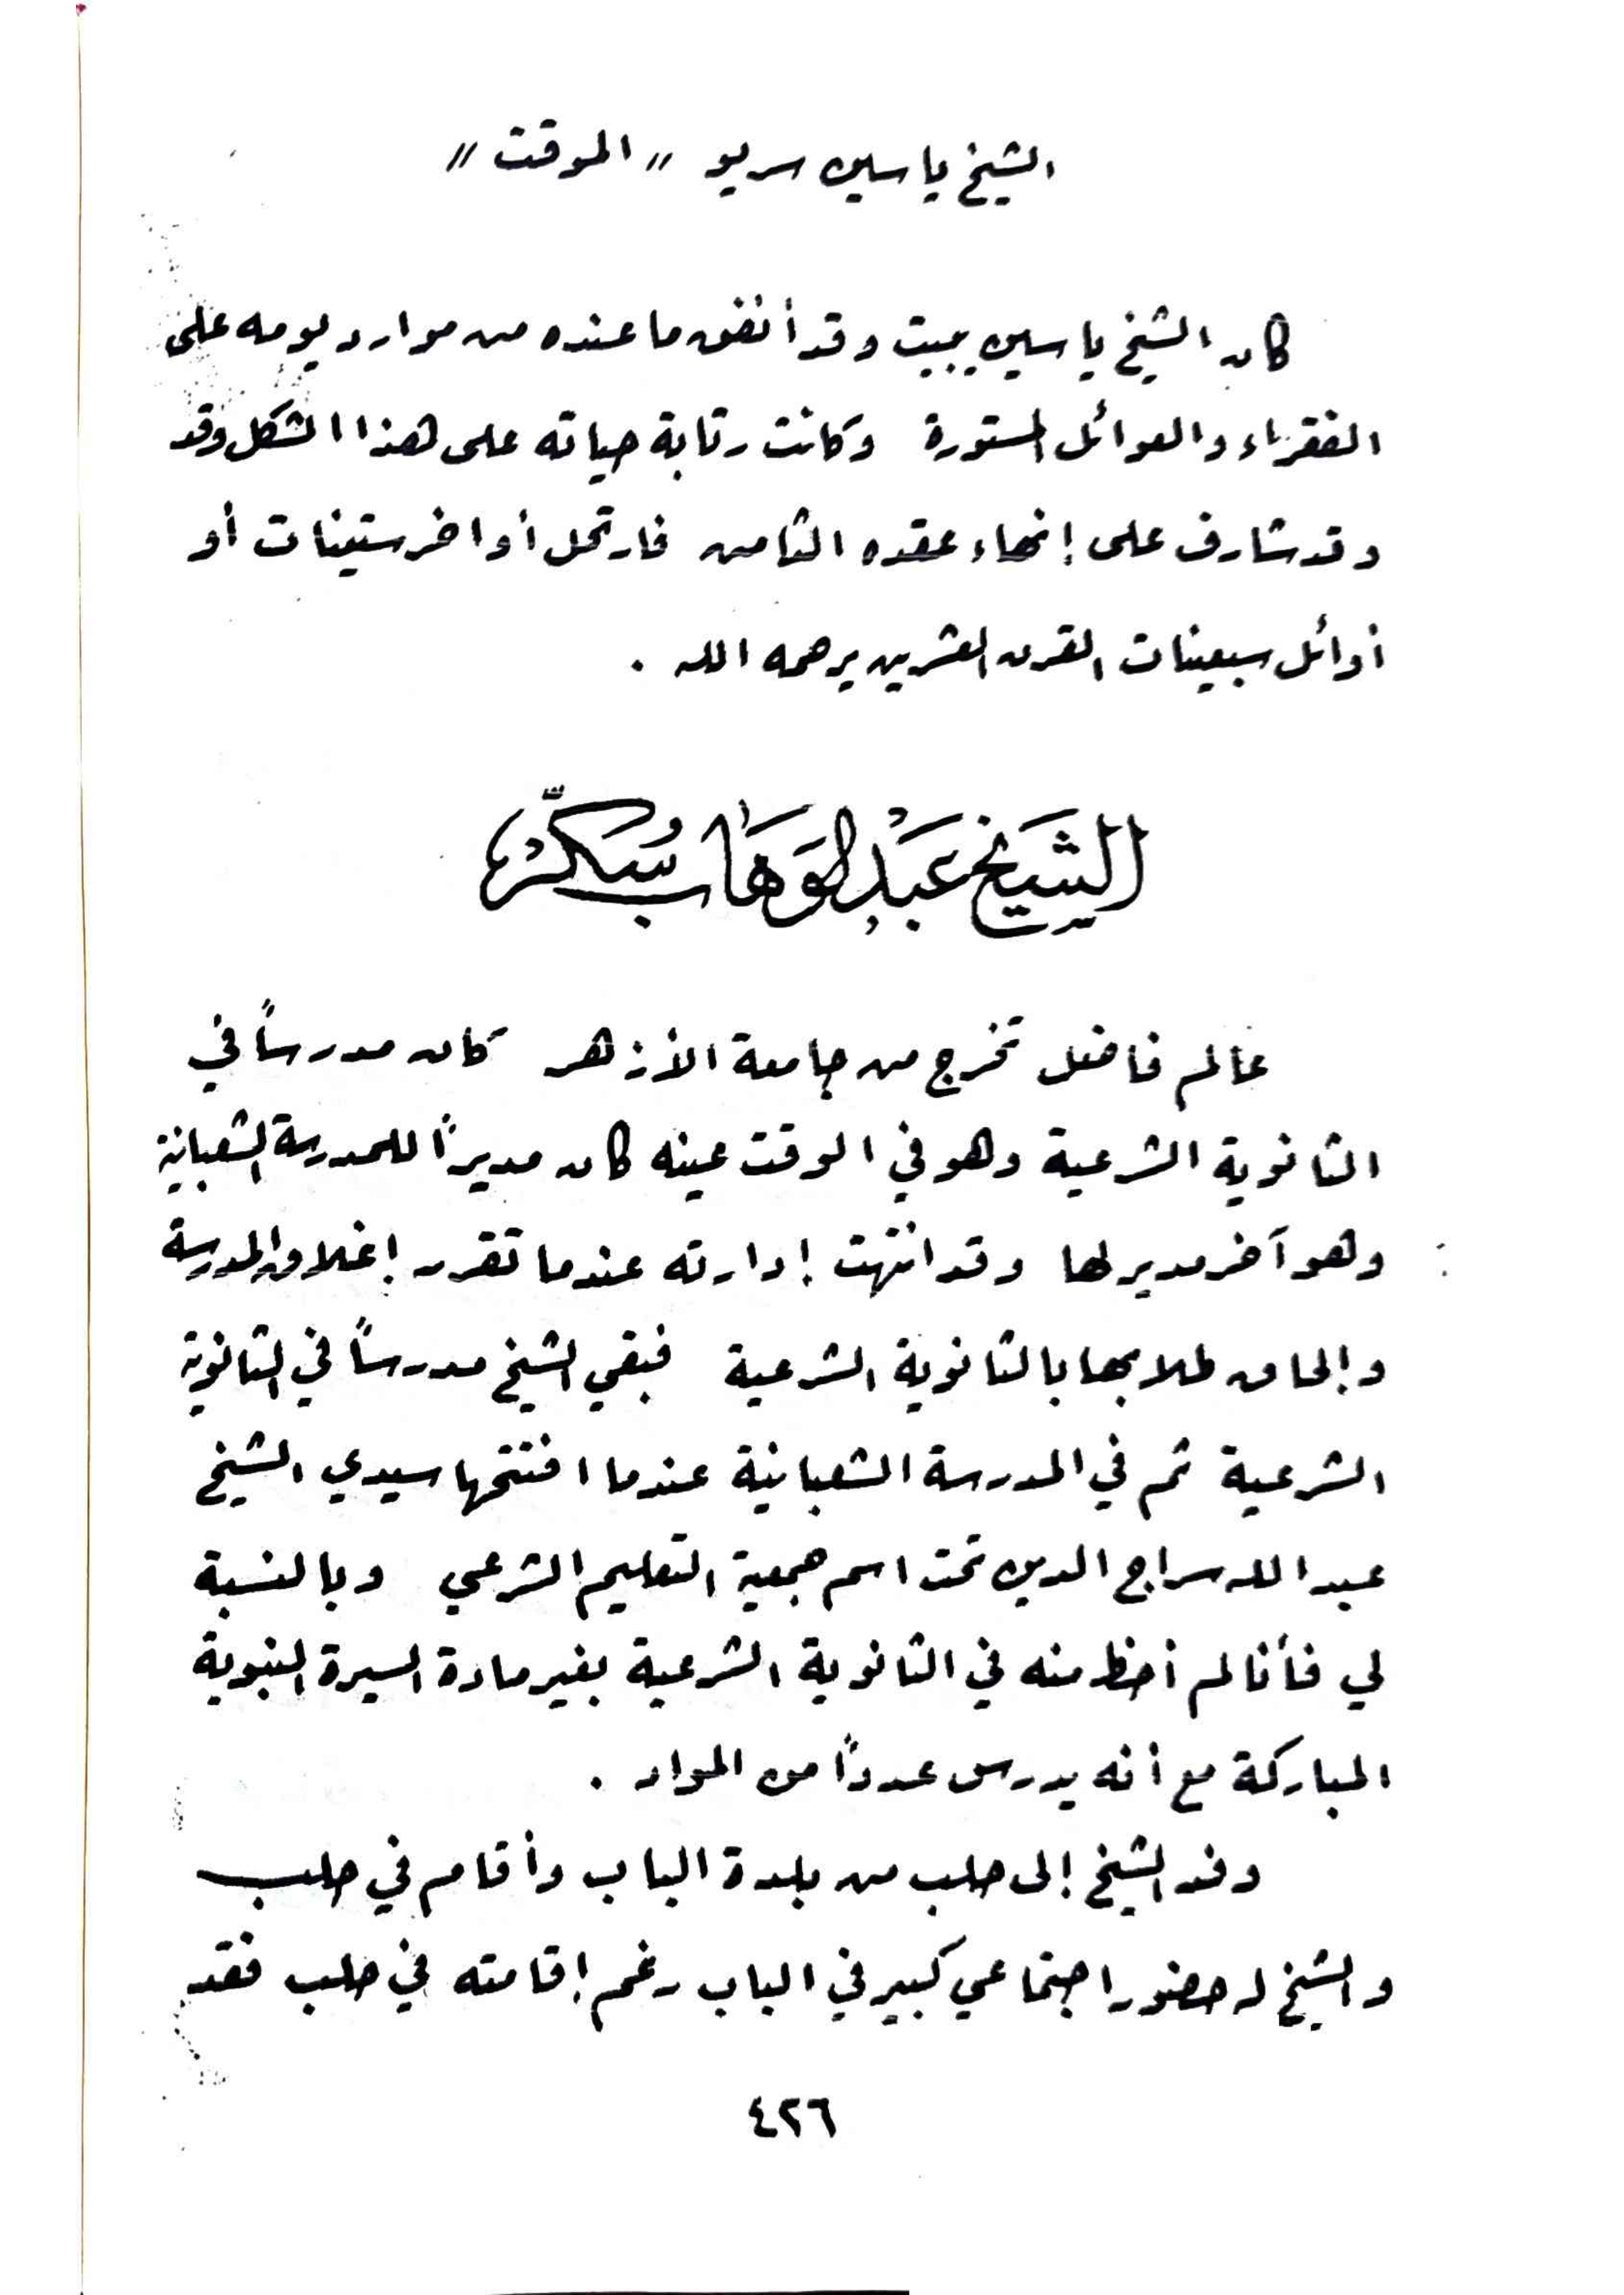 الشيخ ياسين سريو "الموقت"
كان الشيخ ياسين يبيت وقد أنفق ما عنده من موارد يومه على
الفقراء والعوائل المستورة وكانت رتابة حياته على هذا الشكل وقد
وقد شارف على إنهاء عقده الثامن فارتحل أواخر ستينات أو
أوائل سبعينات القرن العشرين يرحمه الله .
الشَيْخ عَبْدالوَهَّاب سُكَّرْ
عالم فاضل تخرج من جامعة الأزهر كان مدرساً في
الثانوية الشرعية وهو في الوقت عينه كان مديراً للمدرسة الشعبانية
وهو آخر مدير لها وقد انتهت إدارته عندما تقرر إغلاق المدرسة
وإلحاق طلابها بالثانوية الشرعية فبقي الشيخ مدرساً في الثانوية
الشرعية ثم في المدرسة الشعبانية عندما افتتحها سيدي الشيخ
عبد الله سراج الدين تحت اسم جمعية التعليم الشرعي وبالنسبة
لي فأنا لم أحظ منه في الثانوية الشرعية بغير مادة السيرة النبوية
المباركة مع أنه يدرس عدداً من المواد .
وفد الشيخ إلى حلب من بلدة الباب وأقام في حلب
والشيخ له حضور اجتماعي كبير في الباب رغم إقامته في حلب فقد
٤٢٦